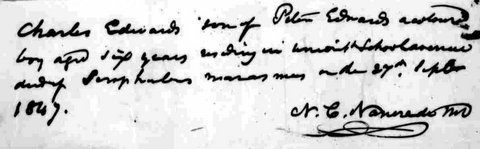 Charles Edwards son of Peter Edwards a coloured
boy aged six years residing in School avenue
died of Scrophulus marasmus on the 27th Septbr
1847.
N. C. Nancrede MD